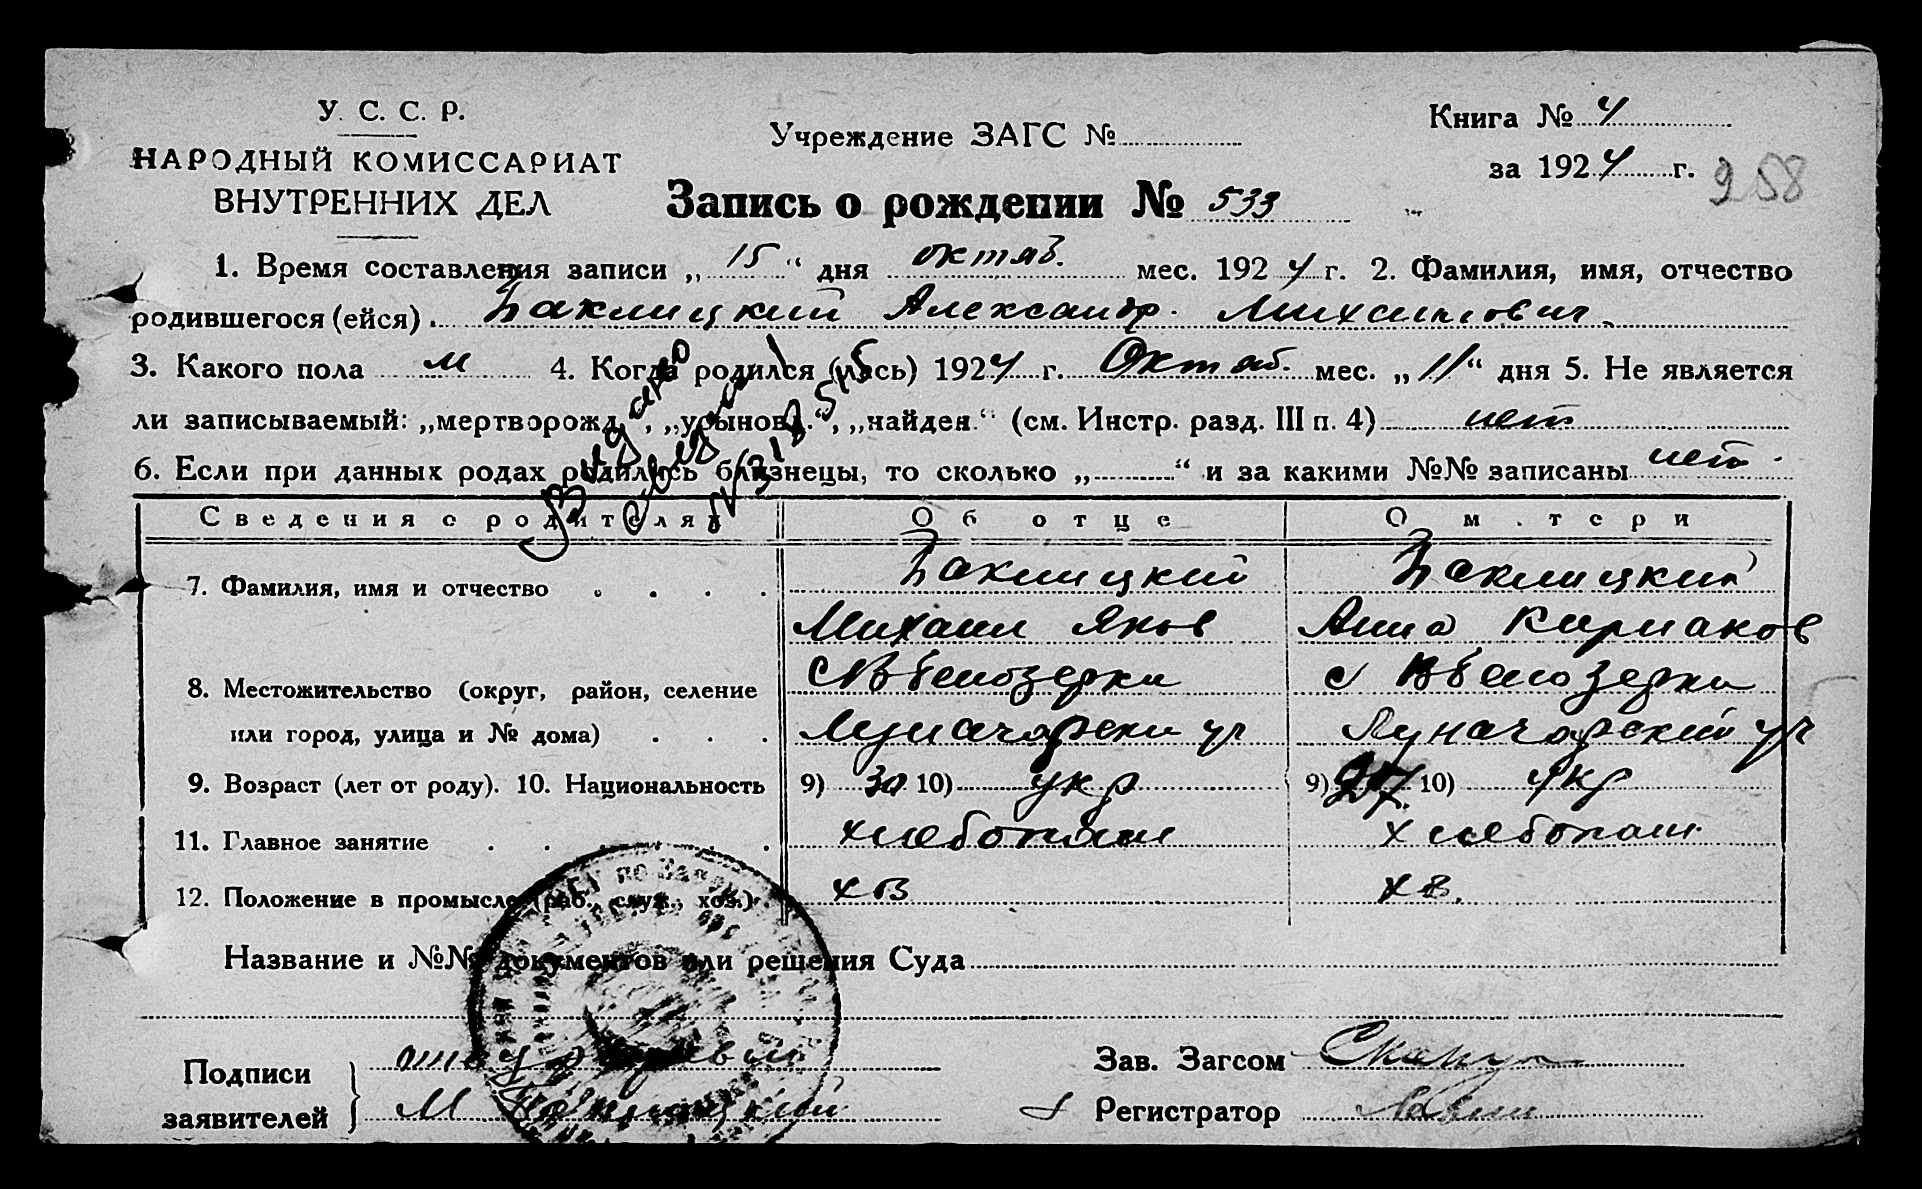 У. С. С. Р.
НАРОДНЫЙ КОМИССАРИАТ
ВНУТРЕННИХ ДЕЛ
Учреждение ЗАГС №
Книга № 4
за 1924 г.
258
Запись о рождении № 533
1. Время составления записи „15“ дня октяб. мес. 1924 г. 2. Фамилия, имя, отчество
родившегося (ейся) Баклицкий Александр Михайлович
3. Какого пола м 4. Когда родился (лась) 1924 г. Октяб. мес. „11“ дня 5. Не является
ли записываемый: „мертворожд.“, „усыновл.“, „найден.“ (см. Инстр. разд. III п. 4) нет
6. Если при данных родах родились близнецы, то сколько „ “ и за какими №№ записаны нет
Выдано
Сведения о родителях
Об отце
О матери
7. Фамилия, имя и отчество
Баклицкий
Михаил Яков
Баклицкий
Анна Кириаков
8. Местожительство (округ, район, селение
или город, улица и № дома)
с Белозерки
Луначарски ул
с Белозерки
Луначарский ул
9. Возраст (лет от роду). 10. Национальность
9) 30 10) укр
9) 27 10) укр
11. Главное занятие
хлебопаш
хлебопаш
12. Положение в промысле (раб., служ., хоз.)
хоз
хоз.
Название и №№ документов или решения Суда
Подписи
заявителей
отец
М Баклицкий
Зав. Загсом
Регистратор